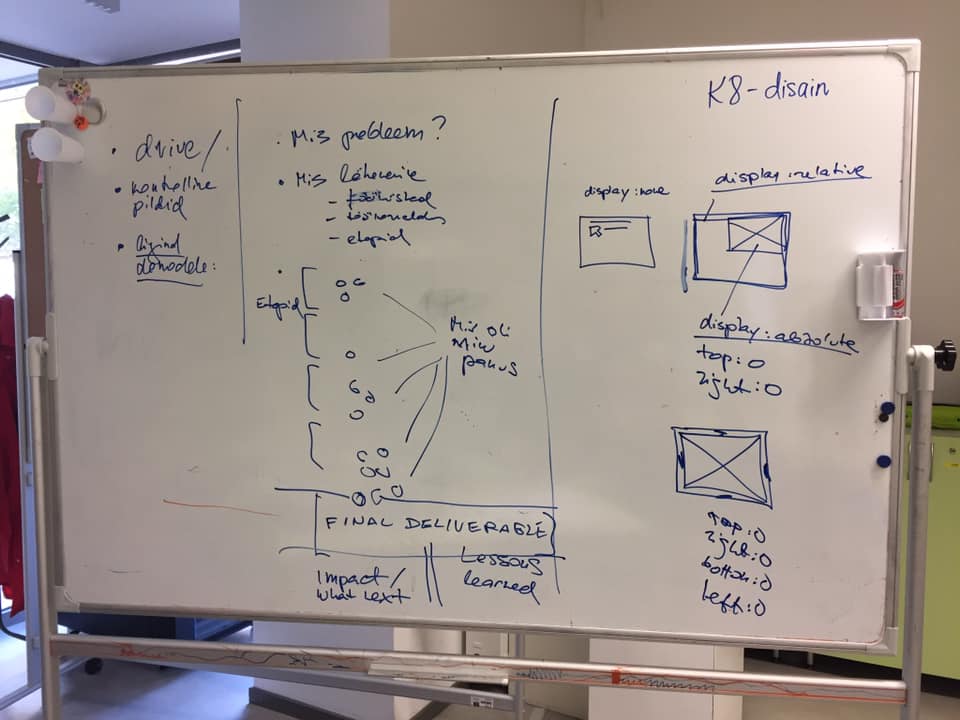 K8-disain
• drive/
• kontrollire
pildid
• ligind
domodele:
• Mis probleem?
• Mis lähenemine
- etapid
Etapid
Mis oli
Minu
panus
FINAL DELIVERABLE
Impact/
what next
Lessons
learned
display:none
display:relative
display:absolute
top:0
right:0
top:0
right:0
bottom:0
left:0